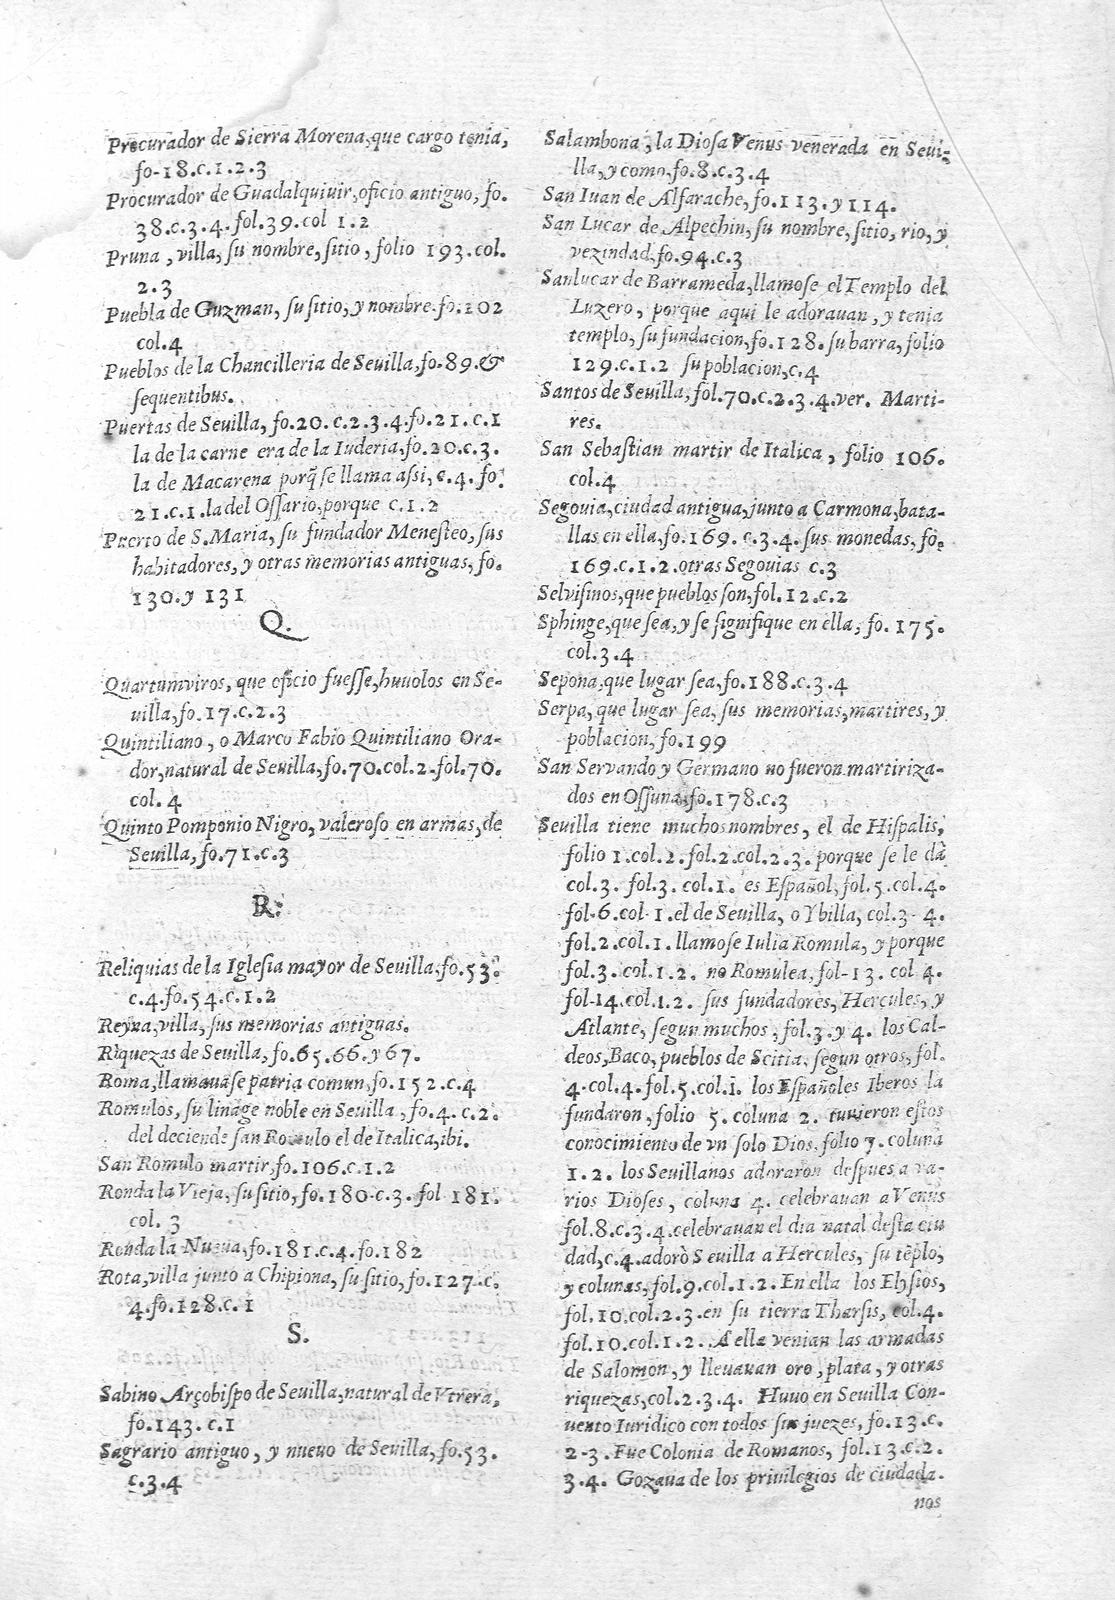 Procurador de Sierra Morena,que cargo tenia,
fo-18.c.1.2.3
Procurador de Guadalquiuir,oficio antiguo,fo.
38.c.3.4.fol.39.col 1.2
Pruna , villa, su nombre, sitio, folio 193.col.
2.3
Puebla de Guzman, su sitio, y nombre.fo.102
col.4
Pueblos de la Chancilleria de Seuilla,fo.89.&
sequentibus.
Puertas de Seuilla, fo.20.c.2.3.4.fo.21.c.1
la de la carne era de la Iuderia,fo.20.c.3.
la de Macarena porq̃ se llama assi, c.4. fo.
21.c.1.la del Ossario,porque c.1.2
Puerto de S.Maria, su fundador Menesteo, sus
habitadores, y otras memorias antiguas, fo.
130.y 131
Q.
Quartumviros, que oficio fuesse,huuolos en Se-
uilla,fo.17.c.2.3
Quintiliano , o Marco Fabio Quintiliano Ora-
dor,natural de Seuilla,fo.70.col.2.fol.70.
col. 4
Quinto Pomponio Nigro, valeroso en armas,de
Seuilla, fo.71.c.3
R.
Reliquias de la Iglesia mayor de Seuilla.fo.53.
c.4.fo.54.c.1.2
Reyna,villa, sus memorias antiguas.
Riquezas de Seuilla, fo.65.66.y 67.
Roma,llamauase patria comun,fo.152.c.4
Romulos, su linage noble en Seuilla , fo.4. c.2.
del deciende san Romulo el de Italica,ibi.
San Romulo martir,fo.106.c.1.2
Ronda la Vieja, su sitio, fo.180.c.3. fol 181.
col. 3
Ronda la Nueua,fo.181.c.4.fo.182
Rota,villa junto a Chipiona, su sitio, fo.127.c.
4.fo.128.c.1
S.
Sabino Arçobispo de Seuilla,natural de Vtrera,
fo.143.c.1
Sagrario antiguo, y nueuo de Seuilla, fo.53.
c.3.4
Salambona , la Diosa Venus venerada en Seui-
lla, y como,fo.8.c.3.4
San Iuan de Alfarache, fo.113.y 114.
San Lucar de Alpechin, su nombre, sitio, rio, y
vezindad,fo.94.c.3
Sanlucar de Barrameda,llamose el Templo del
Luzero, porque aqui le adorauan, y tenia
templo, su fundacion,fo.128. su barra, folio
129.c.1.2 su poblacion,c.4
Santos de Seuilla, fol.70.c.2.3.4.ver. Marti-
res.
San Sebastian martir de Italica , folio 106.
col.4
Segouia,ciudad antigua,junto a Carmona,bata-
llas en ella,fo.169. c.3.4. sus monedas, fo.
169.c.1.2.otras Segouias c.3
Selvisinos,que pueblos son,fol.12.c.2
Sphinge,que sea, y se signifique en ella, fo. 175.
col.3.4
Sepona,que lugar sea,fo.188.c.3.4
Serpa, que lugar sea, sus memorias,martires, y
poblacion, fo.199
San Seruando y Germano no fueron martiriza-
dos en Ossuna,fo.178.c.3
Seuilla tiene muchos nombres, el de Hispalis,
folio 1.col.2.fol.2.col.2.3. porque se le dà
col.3. fol.3. col.1. es Español, fol.5.col.4.
fol.6.col.1.el de Seuilla, o Ybilla, col.3. 4.
fol.2.col.1. llamose Iulia Romula, y porque
fol.3. col.1.2. no Romulea, fol-13. col 4.
fol-14.col.1.2. sus fundadores, Hercules, y
Atlante, segun muchos , fol.3.y 4. los Cal-
deos,Baco, pueblos de Scitia, segun otros, fol.
4.col.4.fol.5.col.1. los Españoles Iberos la
fundaron , folio 5. coluna 2. tuuieron estos
conocimiento de vn solo Dios, folio 7. coluna
1.2. los Seuillanos adoraron despues a va-
rios Dioses , coluna 4. celebrauan a Venus
fol.8.c.3.4.celebrauan el dia natal desta ciu
dad,c.4.adorò Seuilla a Hercules, su tẽplo,
y colunas, fol.9.col.1.2.En ella los Elysios,
fol.10.col.2.3.en su tierra Tharsis, col.4.
fol.10.col.1.2. A ella venian las armadas
de Salomon, y lleuauan oro, plata, y otras
riquezas,col.2.3.4. Huuo en Seuilla Con-
uento Iuridico con todos sus juezes, fo.13.c.
2-3.Fue Colonia de Romanos, fol.13.c.2.
3.4. Gozaua de los priuilegios de ciudada-
nos